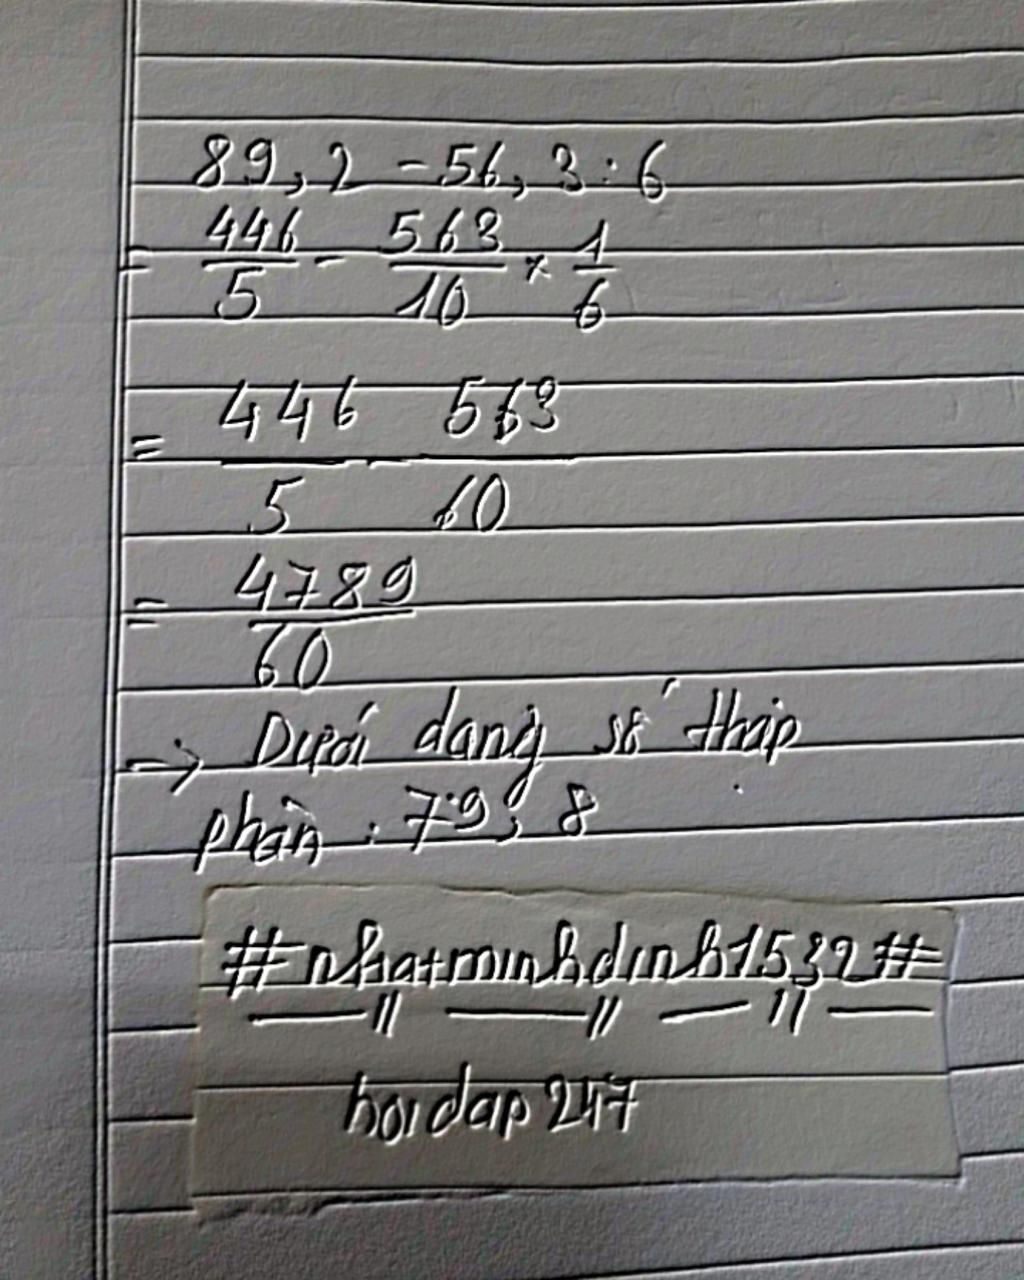 89,2 - 56,3 : 6
= 446/5 - 563/10 × 1/6
= 446/5 - 563/60
= 4789/60
→ Dưới dạng số thập
phần : 79,8
#nhatminhdinh1532#
hoidap247